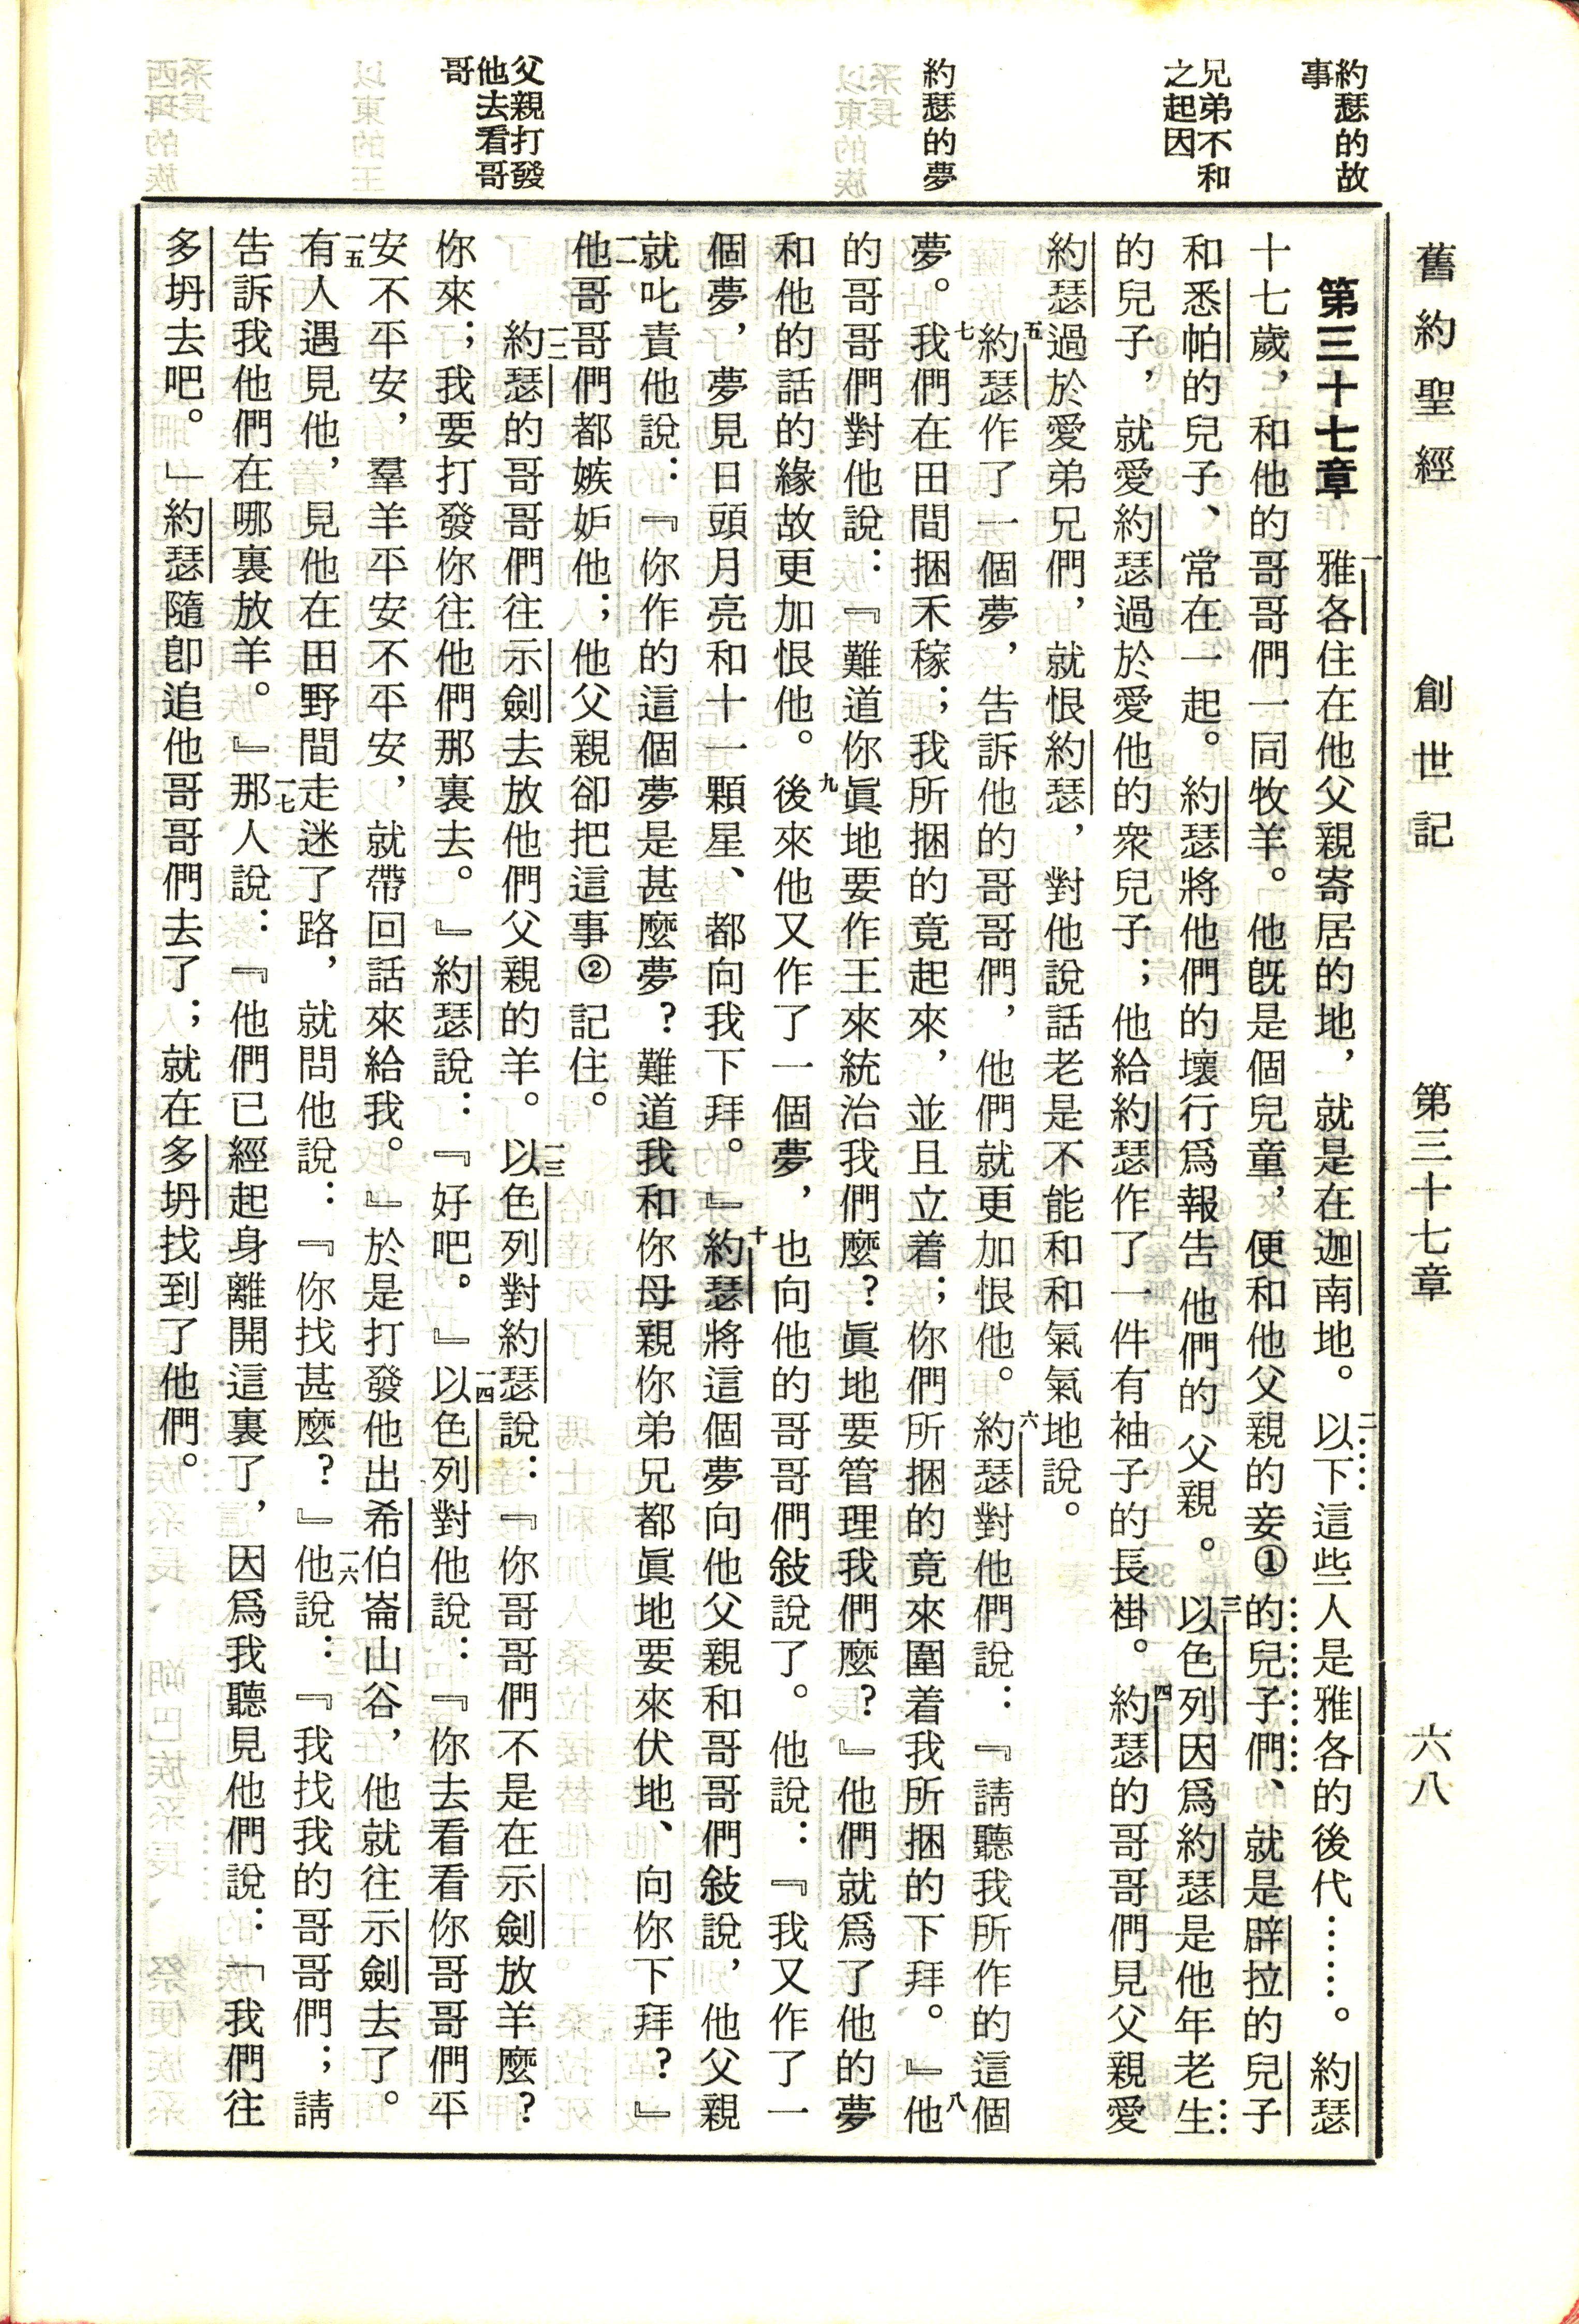 舊約聖經　創世記　第三十七章　六八
約瑟的故
事
兄弟不和
之起因
約瑟的夢
父親打發
他去看哥
哥
第三十七章　一雅各住在他父親寄居的地，就是在迦南地。二以下這些人是雅各的後代……。約瑟
十七歲，和他的哥哥們一同牧羊。他旣是個兒童，便和他父親的妾①的兒子們、就是辟拉的兒子
和悉帕的兒子、常在一起。約瑟將他們的壞行爲報告他們的父親。三以色列因爲約瑟是他年老生
的兒子，就愛約瑟過於愛他的衆兒子；他給約瑟作了一件有袖子的長褂。四約瑟的哥哥們見父親愛
約瑟過於愛弟兄們，就恨約瑟，對他說話老是不能和和氣氣地說。
五約瑟作了一個夢，告訴他的哥哥們，他們就更加恨他。六約瑟對他們說：『請聽我所作的這個
夢。七我們在田間捆禾稼；我所捆的竟起來，並且立着；你們所捆的竟來圍着我所捆的下拜。』八他
的哥哥們對他說：『難道你眞地要作王來統治我們麼？眞地要管理我們麼？』他們就爲了他的夢
和他的話的緣故更加恨他。九後來他又作了一個夢，也向他的哥哥們敍說了。他說：『我又作了一
個夢，夢見日頭月亮和十一顆星、都向我下拜。』十約瑟將這個夢向他父親和哥哥們敍說，他父親
就叱責他說：『你作的這個夢是甚麼夢？難道我和你母親你弟兄都眞地要來伏地、向你下拜？』
一一他哥哥們都嫉妒他；他父親卻把這事②記住。
一二約瑟的哥哥們往示劍去放他們父親的羊。一三以色列對約瑟說：『你哥哥們不是在示劍放羊麼？
你來；我要打發你往他們那裏去。』約瑟說：『好吧。』一四以色列對他說：『你去看看你哥哥們平
安不平安，羣羊平安不平安，就帶回話來給我。』於是打發他出希伯崙山谷，他就往示劍去了。
一五有人遇見他，見他在田野間走迷了路，就問他說：『你找甚麼？』一六他說：『我找我的哥哥們；請
告訴我他們在哪裏放羊。』一七那人說：『他們已經起身離開這裏了，因爲我聽見他們說：「我們往
多坍去吧。」約瑟隨卽追他哥哥們去了；就在多坍找到了他們。